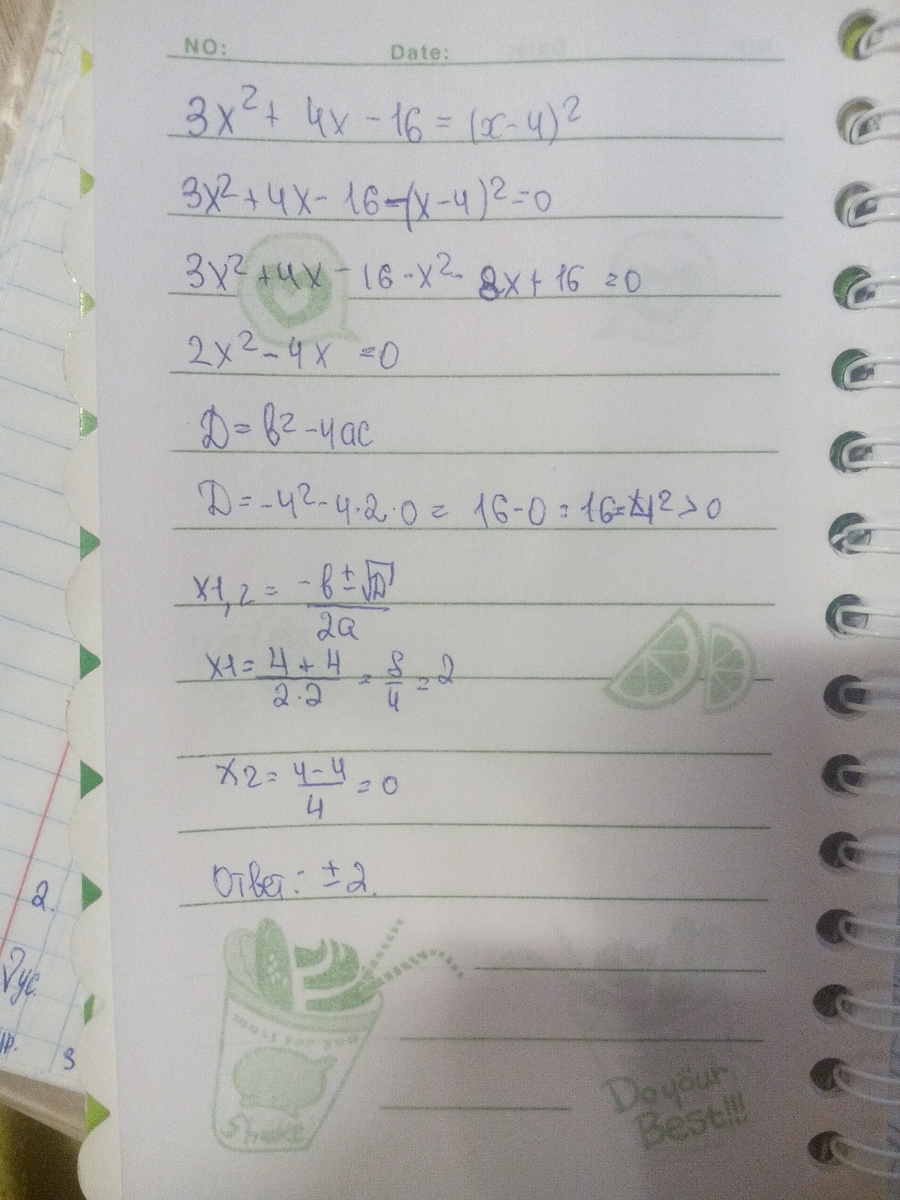 NO: Date:
3x² + 4x - 16 = (x-4)²
3x² + 4x - 16 - (x-4)² = 0
3x² + 4x - 16 - x² - 8x + 16 = 0
2x² - 4x = 0
D = b² - 4ac
D = -4² - 4·2·0 = 16 - 0 = 16 = 4² > 0
x1,2 = -b ± √D / 2a
x1 = 4 + 4 / 2·2 = 8/4 = 2
x2 = 4 - 4 / 4 = 0
Ответ: ± 2.
2.
Рус.
3
must for you
Shake
Do your
Best!!!